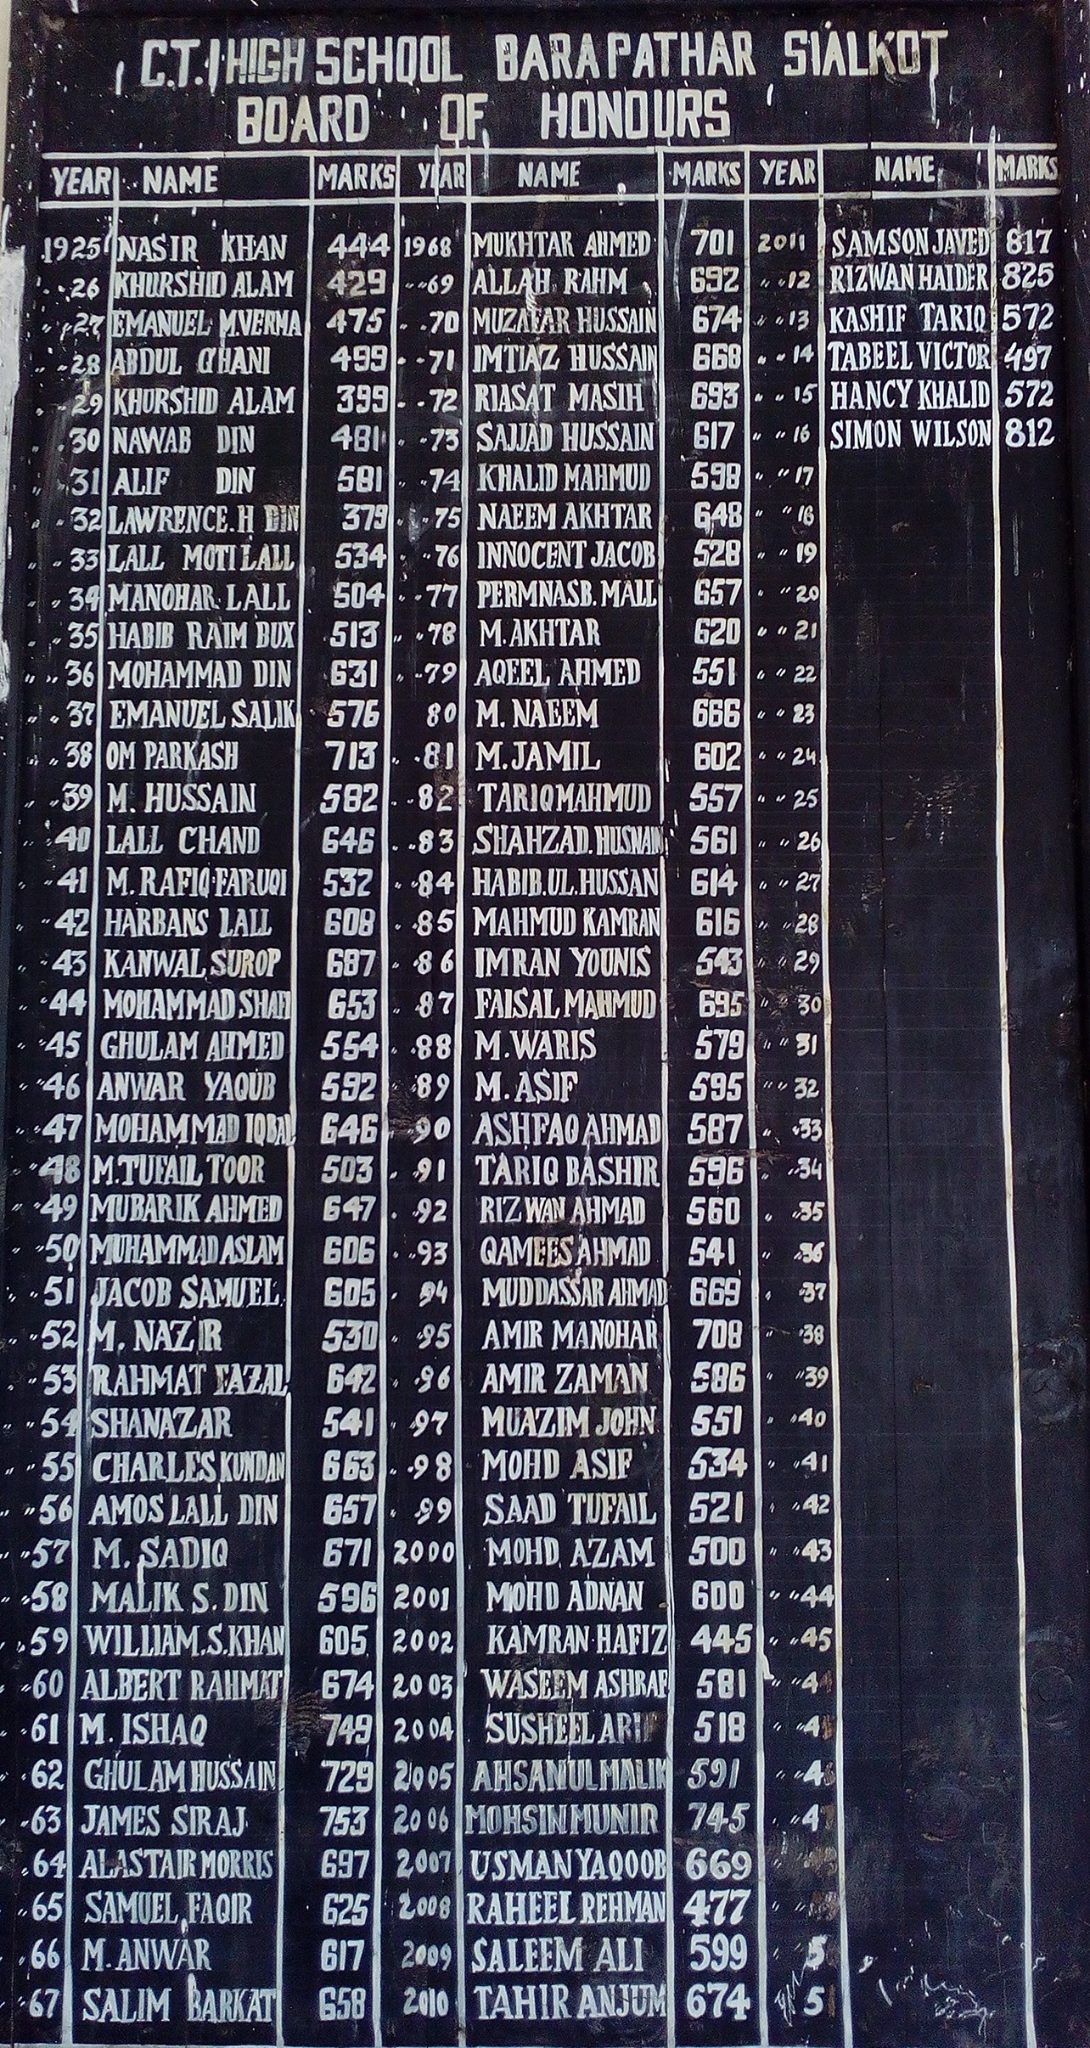 C.T.I HIGH SCHOOL BARA PATHAR SIALKOT
BOARD OF HONOURS
YEAR NAME MARKS YEAR NAME MARKS YEAR NAME MARKS
1925 NASIR KHAN 444 1968 MUKHTAR AHMED 701 2011 SAMSON JAVED 817
26 KHURSHID ALAM 429 69 ALLAH RAHM 692 12 RIZWAN HAIDER 825
27 EMANUEL M.VERMA 475 70 MUZAFAR HUSSAIN 674 13 KASHIF TARIQ 572
28 ABDUL GHANI 499 71 IMTIAZ HUSSAIN 668 14 TABEEL VICTOR 497
29 KHURSHID ALAM 399 72 RIASAT MASIH 693 15 HANCY KHALID 572
30 NAWAB DIN 481 73 SAJJAD HUSSAIN 617 16 SIMON WILSON 812
31 ALIF DIN 581 74 KHALID MAHMUD 598 17
32 LAWRENCE.H DIN 379 75 NAEEM AKHTAR 648 18
33 LALL MOTI LALL 534 76 INNOCENT JACOB 528 19
34 MANOHAR LALL 504 77 PERMNASB. MALL 657 20
35 HABIB RAIM BUX 513 78 M. AKHTAR 620 21
36 MOHAMMAD DIN 631 79 AQEEL AHMED 551 22
37 EMANUEL SALIK 576 80 M. NAEEM 666 23
38 OM PARKASH 713 81 M. JAMIL 602 24
39 M. HUSSAIN 582 82 TARIQ MAHMUD 557 25
40 LALL CHAND 646 83 SHAHZAD. HUSNAIN 561 26
41 M. RAFIQ FARUQI 532 84 HABIB.UL.HUSSAN 614 27
42 HARBANS LALL 608 85 MAHMUD KAMRAN 616 28
43 KANWAL SUROP 687 86 IMRAN YOUNIS 543 29
44 MOHAMMAD SHAFI 653 87 FAISAL MAHMUD 695 30
45 GHULAM AHMED 554 88 M. WARIS 579 31
46 ANWAR YAQUB 592 89 M. ASIF 595 32
47 MOHAMMAD IQBAL 646 90 ASHFAQ AHMAD 587 33
48 M. TUFAIL TOOR 503 91 TARIQ BASHIR 596 34
49 MUBARIK AHMED 647 92 RIZWAN AHMAD 560 35
50 MUHAMMAD ASLAM 606 93 QAMEES AHMAD 541 36
51 JACOB SAMUEL 605 94 MUDDASSAR AHMAD 669 37
52 M. NAZIR 530 95 AMIR MANOHAR 708 38
53 RAHMAT FAZAL 642 96 AMIR ZAMAN 586 39
54 SHANAZAR 541 97 MUAZIM JOHN 551 40
55 CHARLES KUNDAN 663 98 MOHD ASIF 534 41
56 AMOS LALL DIN 657 99 SAAD TUFAIL 521 42
57 M. SADIQ 671 2000 MOHD AZAM 500 43
58 MALIK S. DIN 596 2001 MOHD ADNAN 600 44
59 WILLIAM.S.KHAN 605 2002 KAMRAN HAFIZ 445 45
60 ALBERT RAHMAT 674 2003 WASEEM ASHRAF 581
61 M. ISHAQ 749 2004 SUSHEEL ARIF 518
62 GHULAM HUSSAIN 729 2005 AHSANUL MALIK 591
63 JAMES SIRAJ 753 2006 MOHSIN MUNIR 745
64 ALASTAIR MORRIS 697 2007 USMAN YAQOOB 669
65 SAMUEL FAQIR 625 2008 RAHEEL REHMAN 477
66 M. ANWAR 617 2009 SALEEM ALI 599
67 SALIM BARKAT 658 2010 TAHIR ANJUM 674